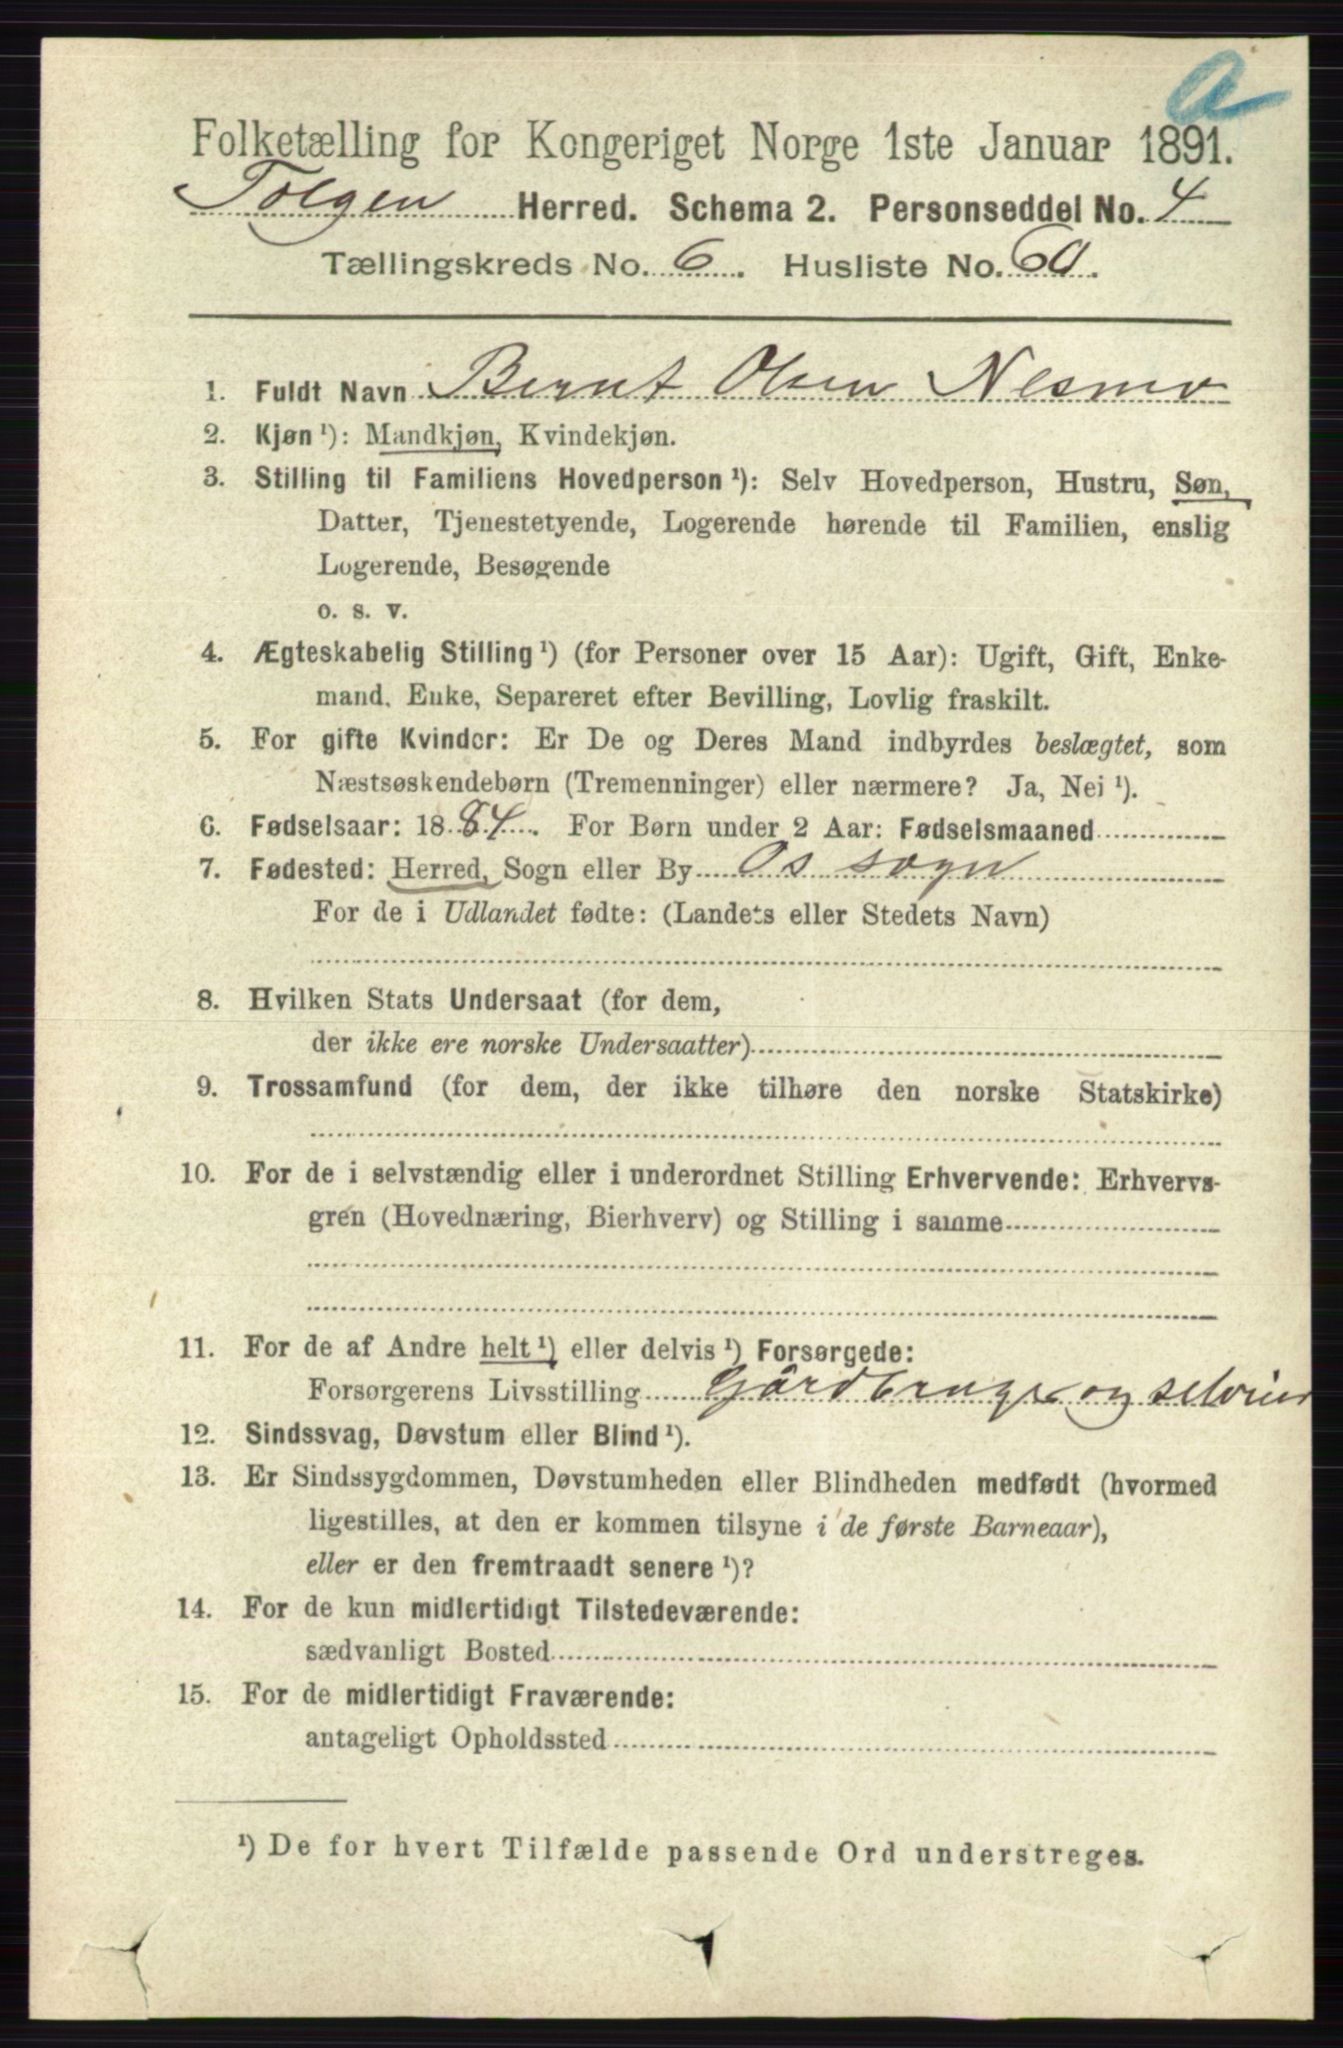 a
Folketælling for Kongeriget Norge 1ste Januar 1891.
Tolgen Herred. Schema 2. Personseddel No. 4
Tællingskreds No. 6. Husliste No. 60.
1. Fuldt Navn Bernt Olsen Nesmo
2. Kjøn ¹): Mandkjøn, Kvindekjøn.
3. Stilling til Familiens Hovedperson ¹): Selv Hovedperson, Hustru, Søn,
Datter, Tjenestetyende, Logerende hørende til Familien, enslig
Logerende, Besøgende
o. s. v.
4. Ægteskabelig Stilling ¹) (for Personer over 15 Aar): Ugift, Gift, Enke-
mand, Enke, Separeret efter Bevilling, Lovlig fraskilt.
5. For gifte Kvinder: Er De og Deres Mand indbyrdes beslægtet, som
Næstsøskendebørn (Tremenninger) eller nærmere? Ja, Nei ¹).
6. Fødselsaar: 1884. For Børn under 2 Aar: Fødselsmaaned
7. Fødested: Herred, Sogn eller By Os sogn
For de i Udlandet fødte: (Landets eller Stedets Navn)
8. Hvilken Stats Undersaat (for dem,
der ikke ere norske Undersaatter)
9. Trossamfund (for dem, der ikke tilhøre den norske Statskirke)
10. For de i selvstændig eller i underordnet Stilling Erhvervende: Erhvervs-
gren (Hovednæring, Bierhverv) og Stilling i samme
11. For de af Andre helt ¹) eller delvis ¹) Forsørgede:
Forsørgerens Livsstilling Gårdbruger og selveier
12. Sindssvag, Døvstum eller Blind ¹).
13. Er Sindssygdommen, Døvstumheden eller Blindheden medfødt (hvormed
ligestilles, at den er kommen tilsyne i de første Barneaar),
eller er den fremtraadt senere ¹)?
14. For de kun midlertidigt Tilstedeværende:
sædvanligt Bosted
15. For de midlertidigt Fraværende:
antageligt Opholdssted
¹) De for hvert Tilfælde passende Ord understreges.